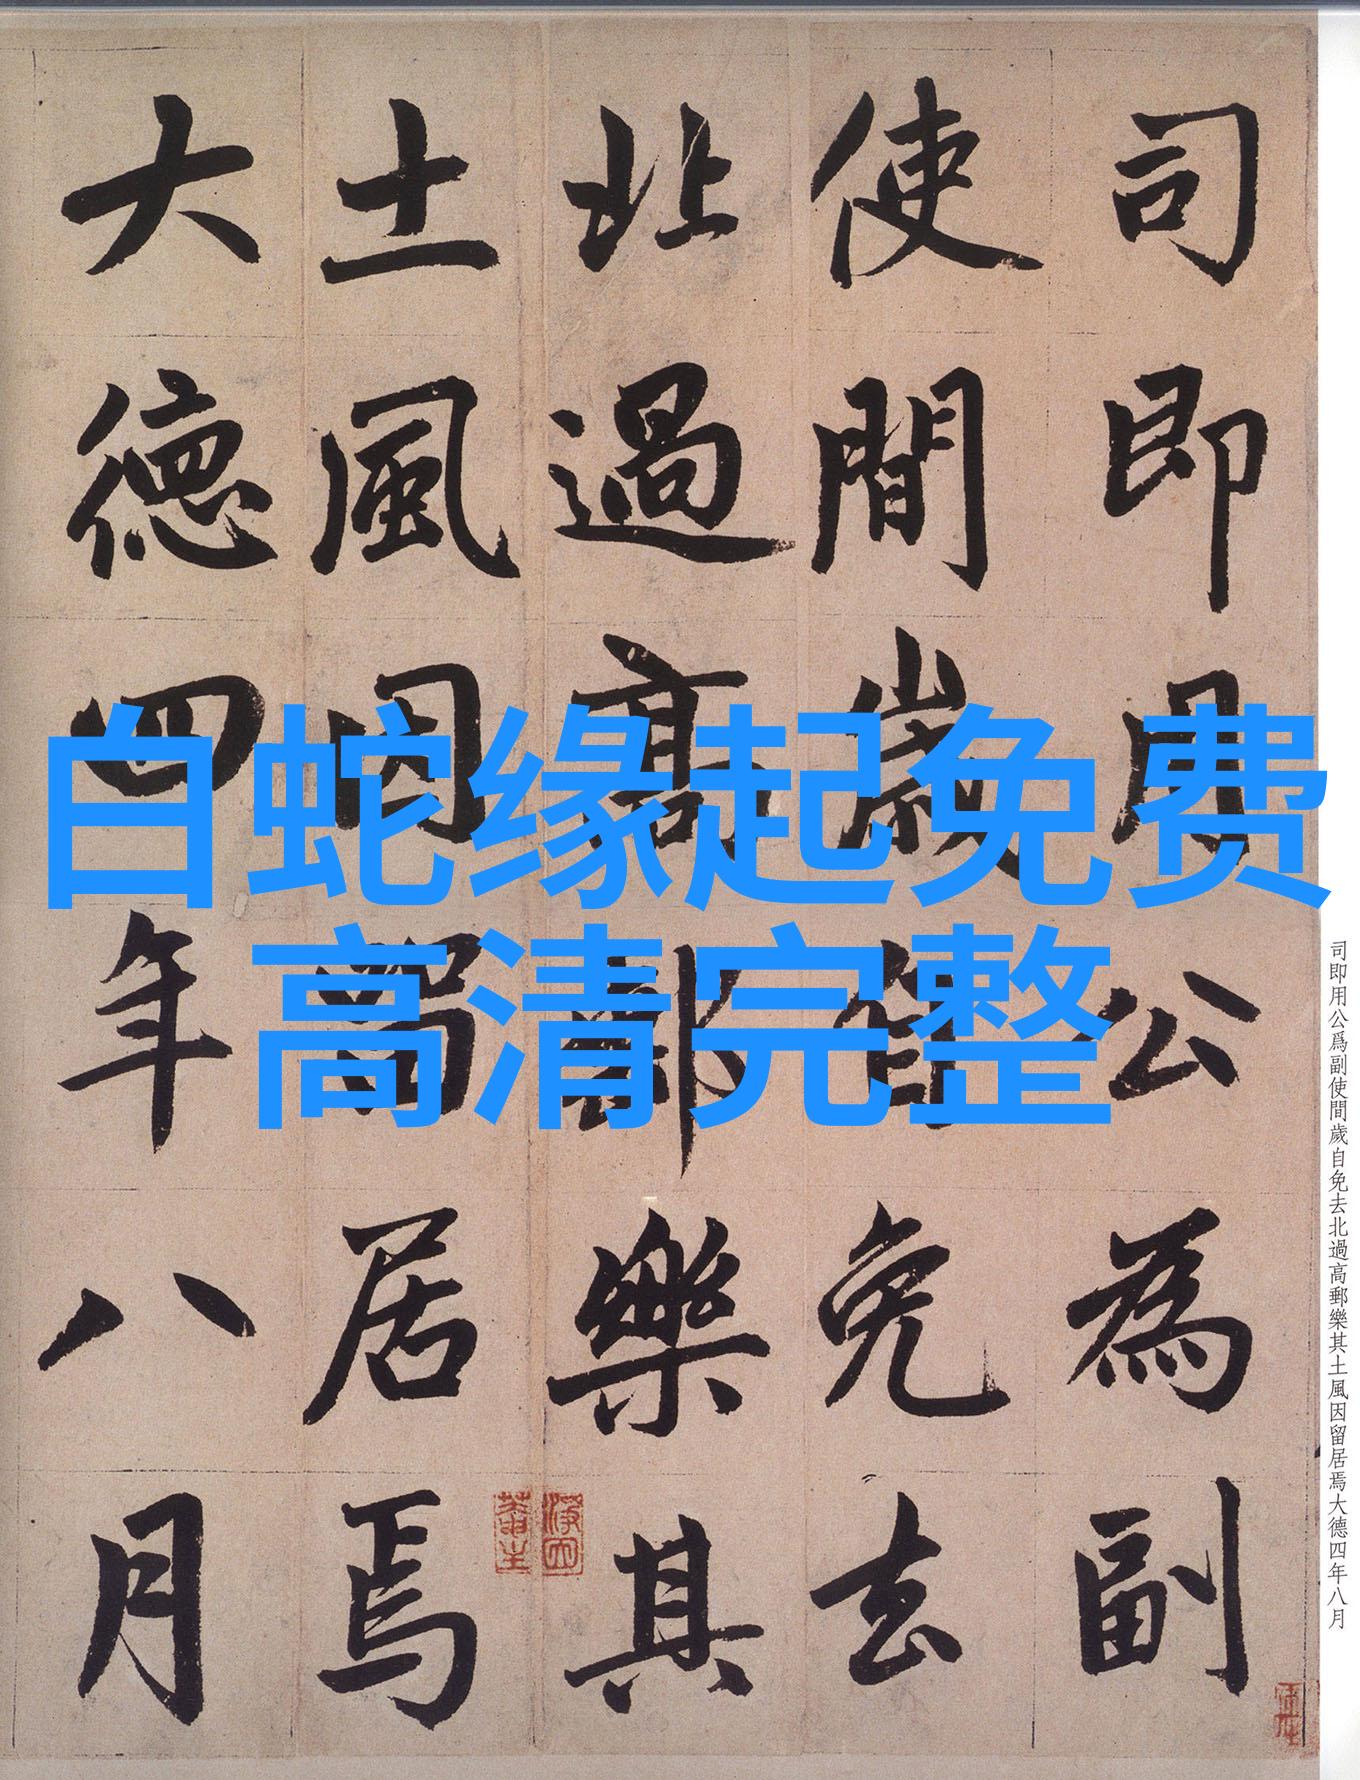 司即用公為副
使間歲自免去
北過高郵樂其
土風因留居焉
大德四年八月
白蛇缘起免费
高清完整
司即用公爲副使間歲自免去北過高郵樂其土風因留居焉大德四年八月